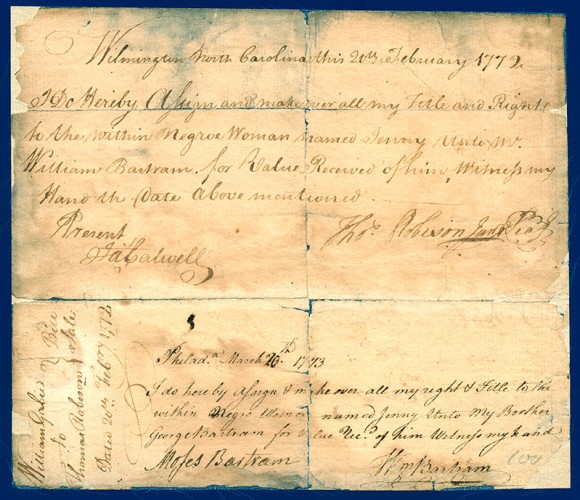 Wilmington North Carolina this 20th February 1772
I Do Hereby Assign and make over all my Title and Right
to the within Negroe Woman named Jenny Unto Mr.
William Bartram for Value Received of him, Witness my
Hand the Date above mentioned.
Present
Jas Calwell
Thos. Robeson Junr
Philada. March 26th 1773
I do hereby assign & make over all my right & Title to the
within Negro Woman named Jenny Unto My Brother
George Bartram for Value Rec'd. of him Witness my hand
Moses Bartram
Wm Bartram
William
Bill
to
Thomas Robeson
Sale
Dated 20th Febry 1772